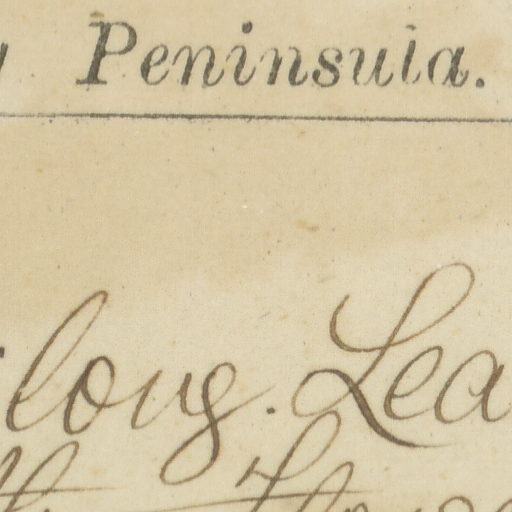 Peninsula.
long. Lea